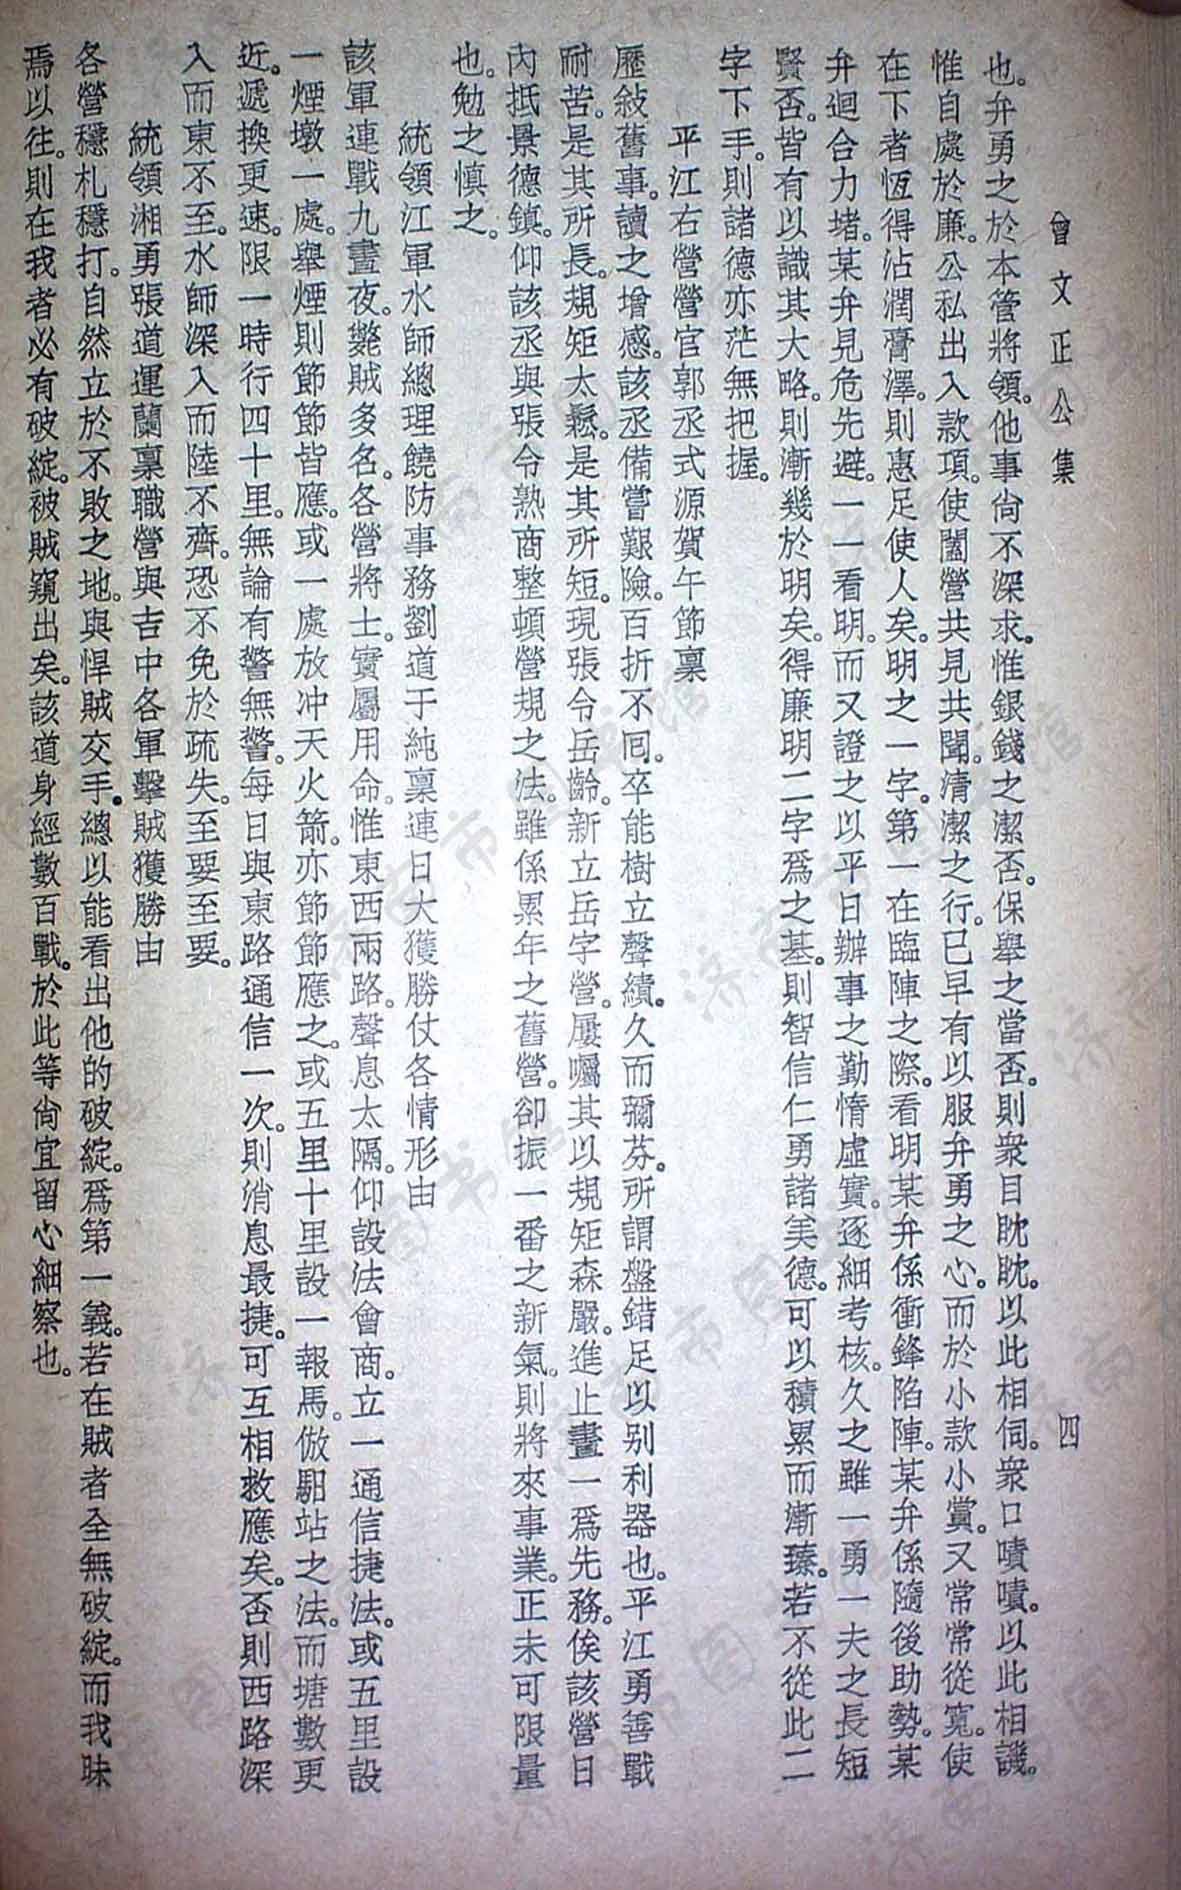 曾文正公集
四
也。弁勇之於本管將領。他事尚不深求。惟銀錢之潔否。保舉之當否。則衆目眈眈。以此相伺。衆口嘖嘖。以此相譏。
惟自處於廉。公私出入款項。使闔營共見共聞。清潔之行。已早有以服弁勇之心。而於小款小賞。又常常從寬。使
在下者恆得沾潤膏澤。則惠足使人矣。明之一字。第一在臨陣之際。看明某弁係衝鋒陷陣。某弁係隨後助勢。某
弁迴合力堵。某弁見危先避。一一看明。而又證之以平日辦事之勤惰虛實。逐細考核。久之雖一勇一夫之長短
賢否。皆有以識其大略。則漸幾於明矣。得廉明二字爲之基。則智信仁勇諸美德。可以積累而漸臻。若不從此二
字下手。則諸德亦茫無把握。
平江右營營官郭丞式源賀午節稟
歷敍舊事。讀之增感。該丞備嘗艱險。百折不囘。卒能樹立聲績。久而彌芬。所謂盤錯足以别利器也。平江勇善戰
耐苦。是其所長。規矩太鬆。是其所短。現張令岳齡。新立岳字營。屢囑其以規矩森嚴。進止畫一爲先務。俟該營日
內抵景德鎮。仰該丞與張令熟商整頓營規之法。雖係累年之舊營。卻振一番之新氣。則將來事業。正未可限量
也。勉之慎之。
統領江軍水師總理饒防事務劉道于純稟連日大獲勝仗各情形由
該軍連戰九晝夜。斃賊多名。各營將士。實屬用命。惟東西兩路。聲息太隔。仰設法會商。立一通信捷法。或五里設
一煙墩一處。舉煙則節節皆應。或一處放冲天火箭。亦節節應之。或五里十里設一報馬。倣馹站之法。而塘數更
近。遞換更速。限一時行四十里。無論有警無警。每日與東路通信一次。則消息最捷。可互相救應矣。否則西路深
入而東不至。水師深入而陸不齊。恐不免於疏失。至要至要。
統領湘勇張道運蘭稟職營與吉中各軍擊賊獲勝由
各營穩札穩打。自然立於不敗之地。與悍賊交手。總以能看出他的破綻。爲第一義。若在賊者全無破綻。而我昧
焉以往。則在我者必有破綻。被賊窺出矣。該道身經數百戰。於此等尚宜留心細察也。